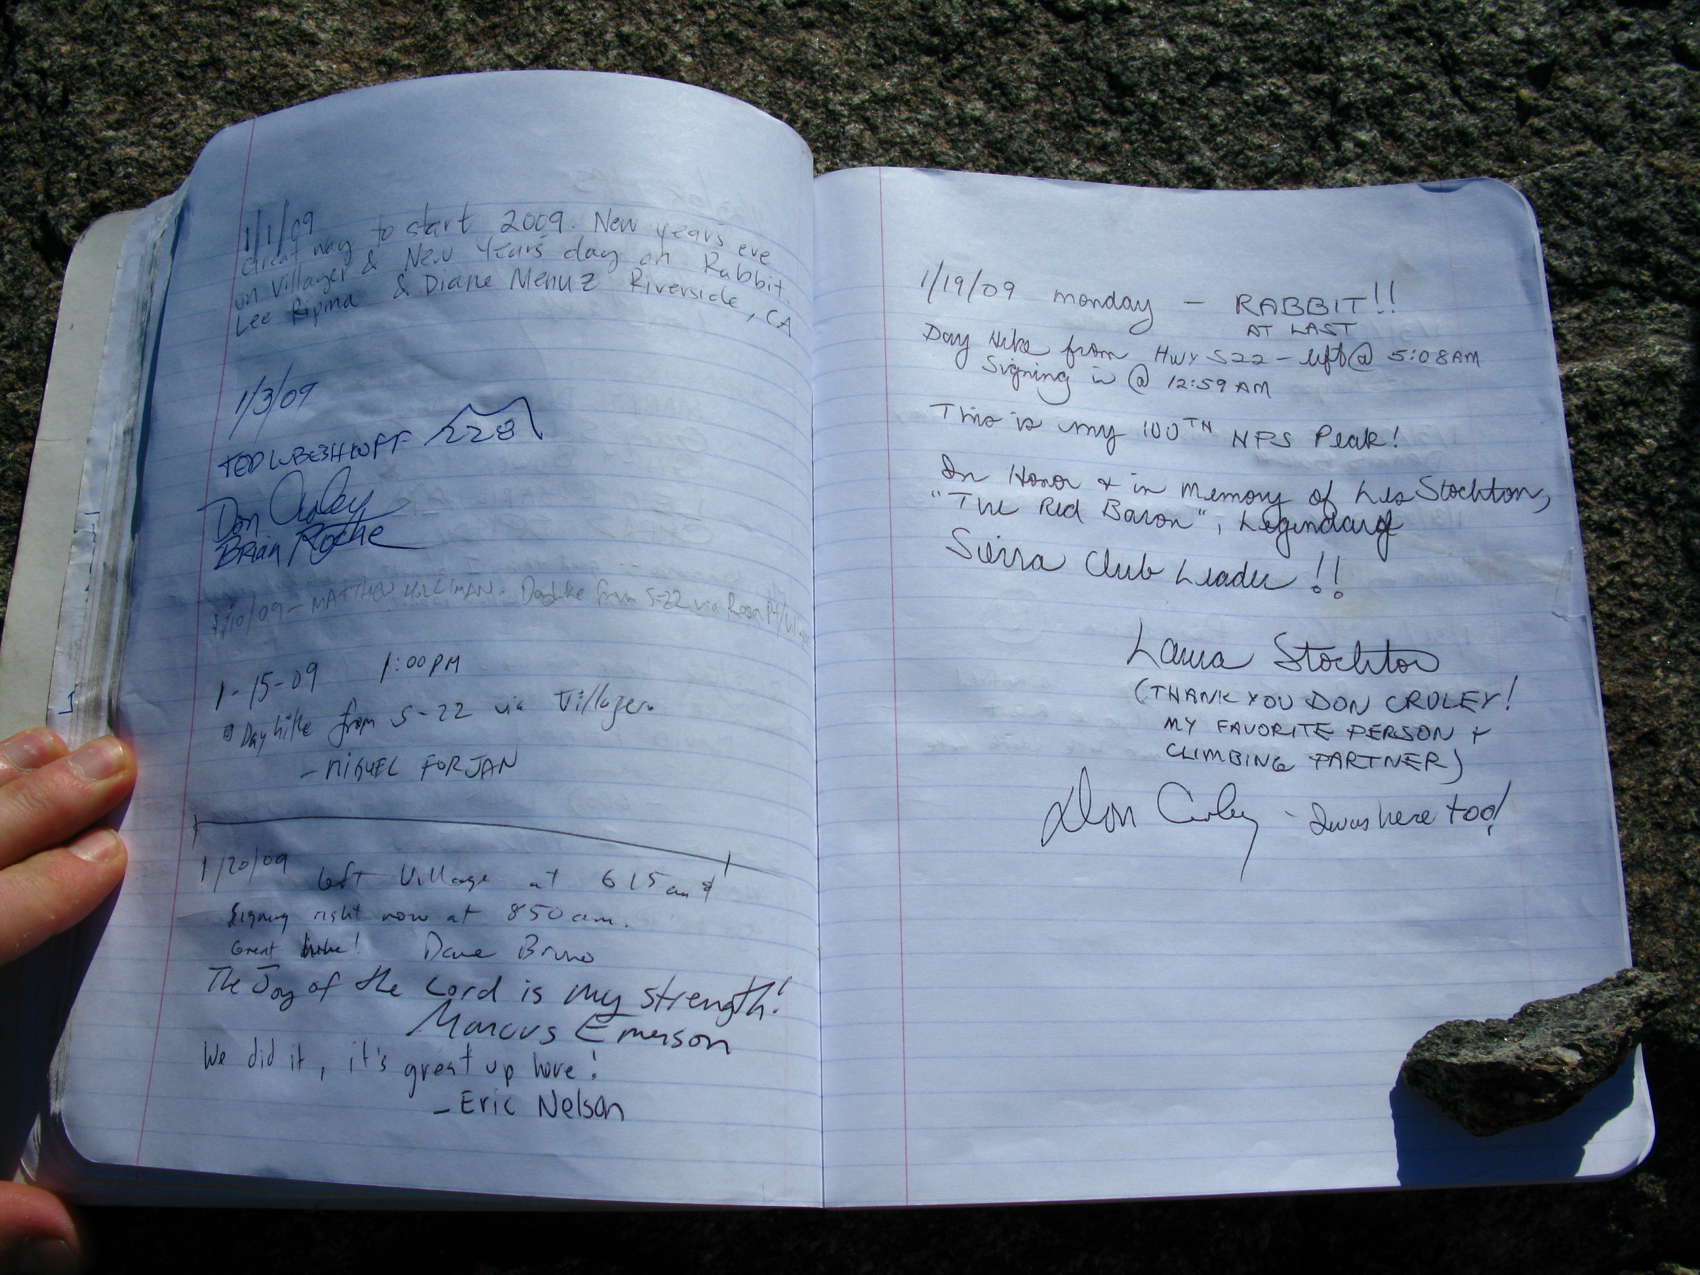 1/1/09
Great way to start 2009. New year's eve
on Villager & New Years day on Rabbit.
Lee Ripma & Diane Menuz Riverside, CA
1/3/09
TED LUBESHKOFF 228
Don Croley
Brian Roche
1/10/09 - MATTHEW HOLLIMAN. Dayhike from S-22 via Rosa Pt/
1-15-09 1:00PM
Dayhike from S-22 via Villager.
- MIGUEL FORJAN
1/20/09 left Village at 615am &
Signing right now at 850am.
Great hike! Dave Bruno
The Joy of the Lord is my strength!
Marcus Emerson
We did it, it's great up here!
- Eric Nelson
1/19/09 monday - RABBIT!!
AT LAST
Day Hike from Hwy S22 - left @ 5:08AM
Signing in @ 12:59AM
This is my 100TH NPS Peak!
In Honor & in Memory of Les Stockton,
"The Red Baron", Legendary
Sierra Club Leader!!
Laura Stockton
(THANK YOU DON CROLEY!
MY FAVORITE PERSON &
CLIMBING PARTNER)
Don Croley - I was here too!